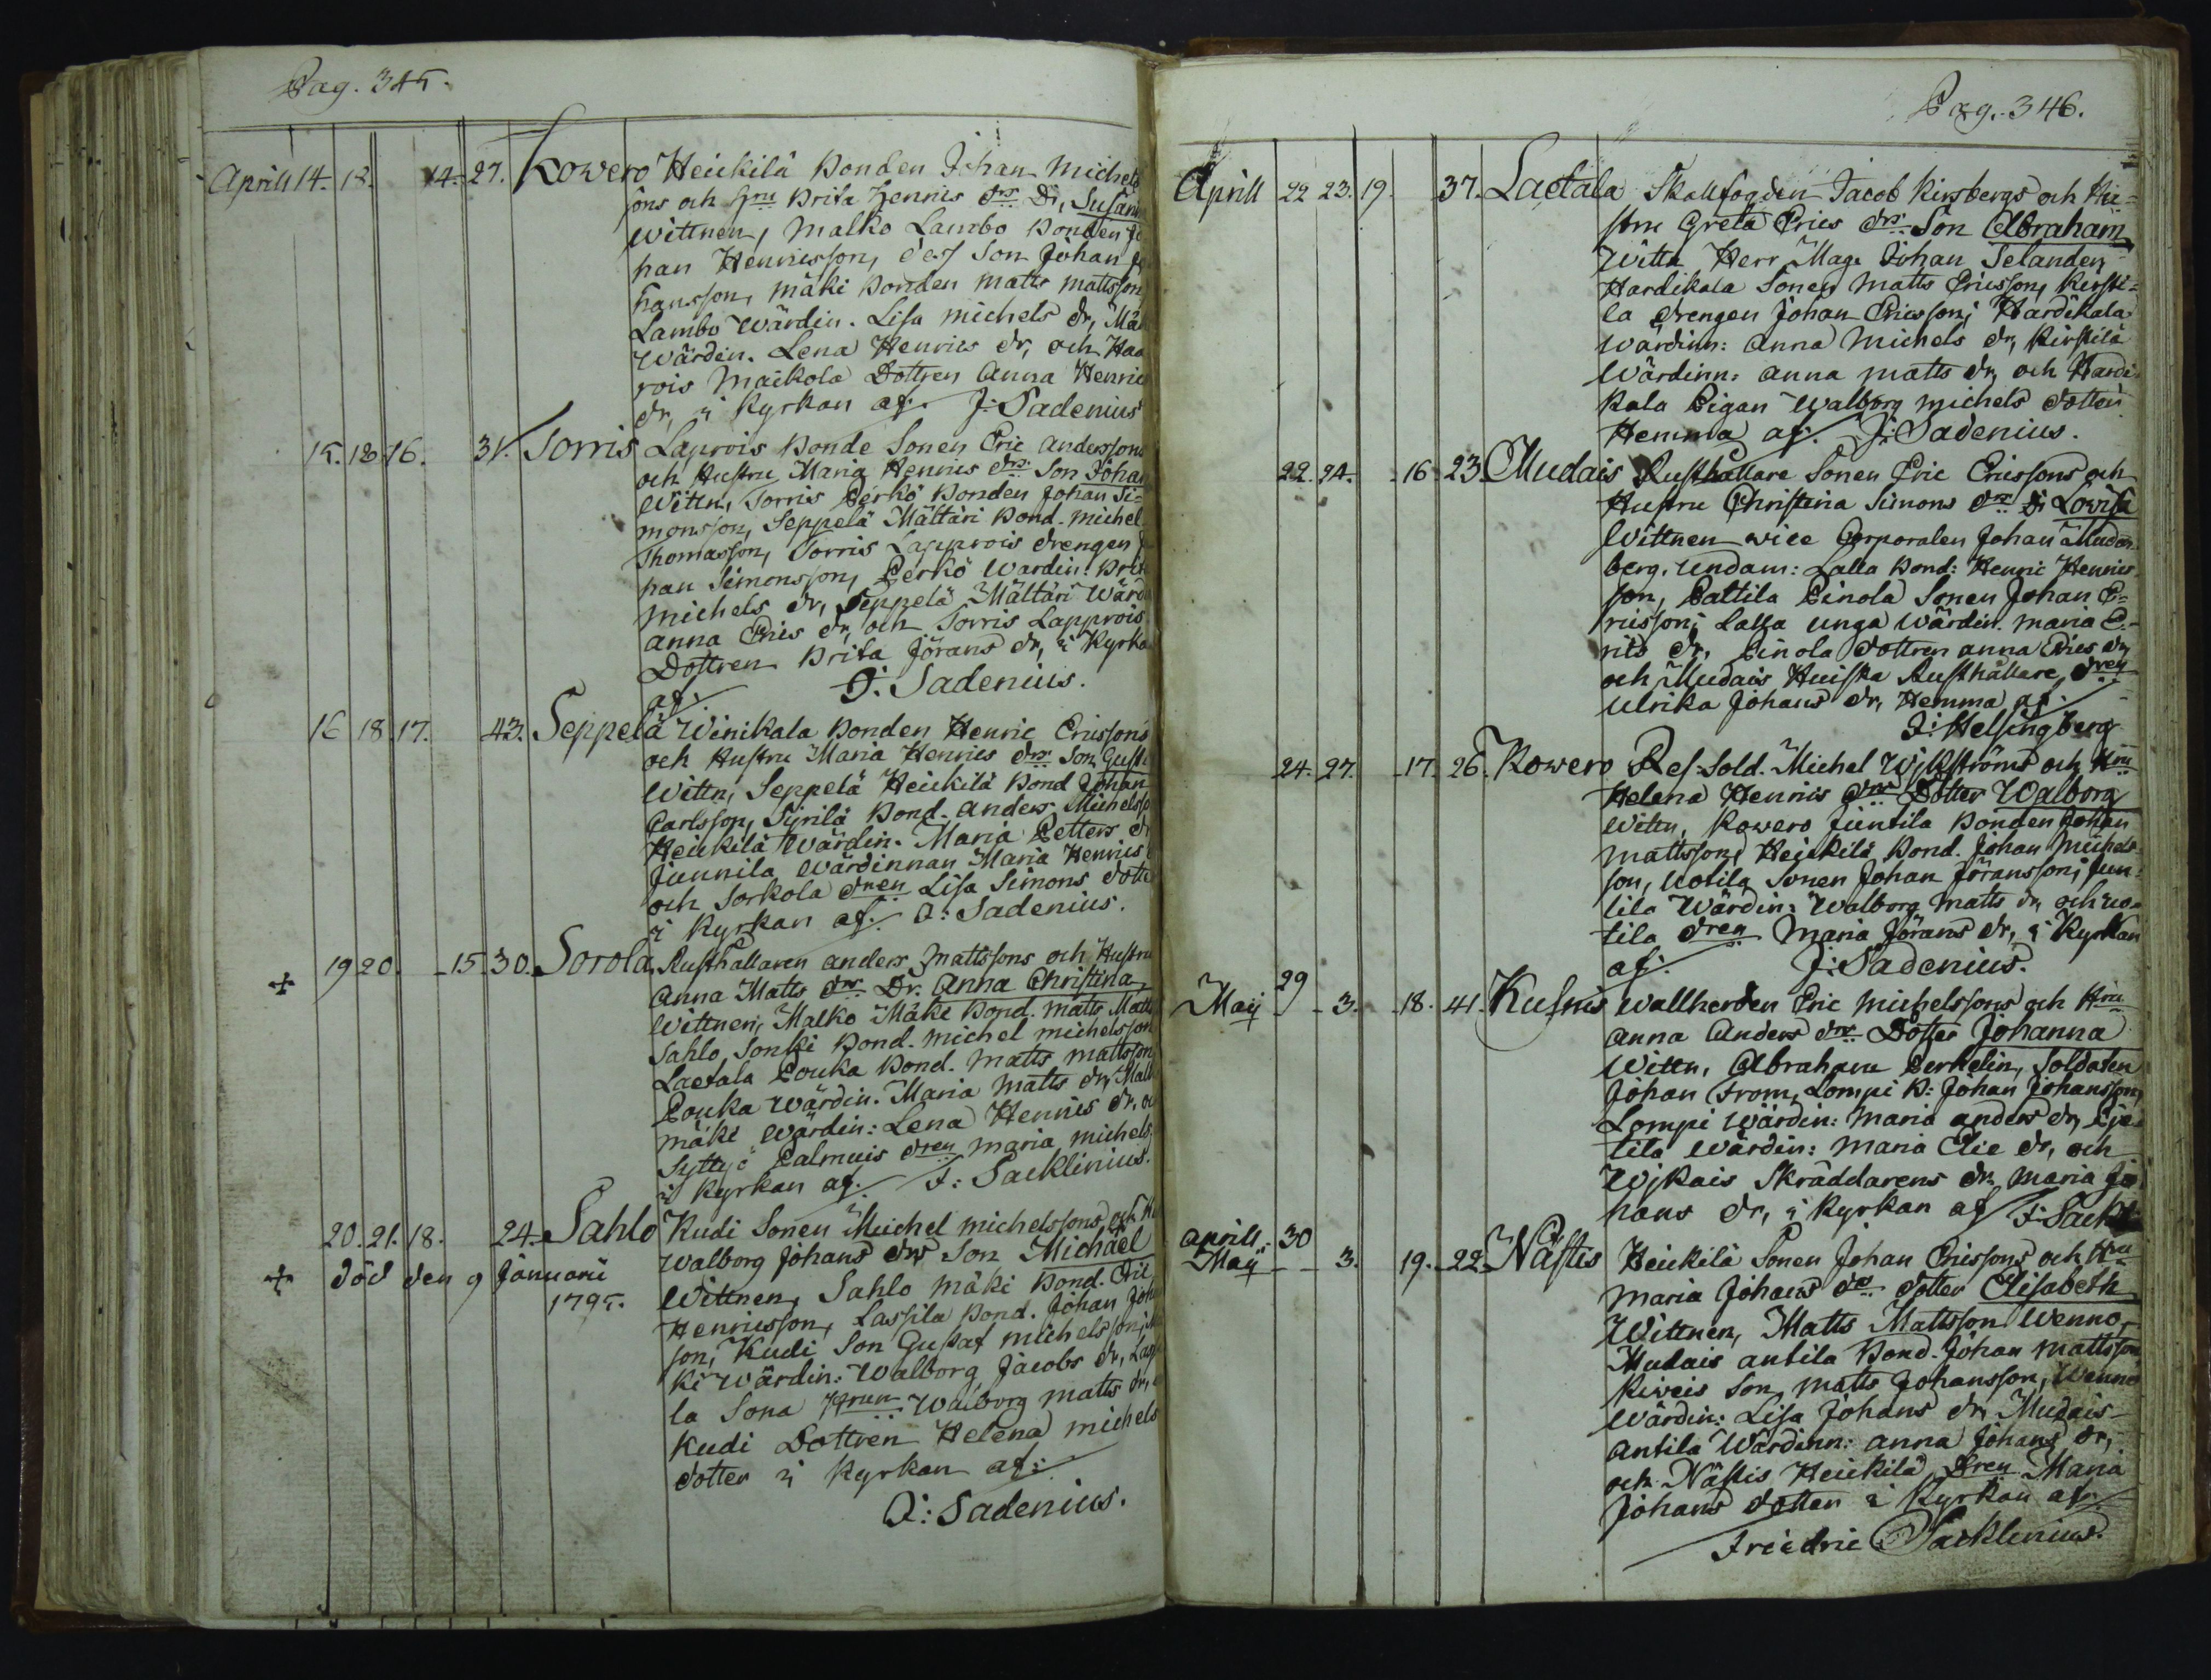 Pag. 345.
Aprill 14. 18. 14. 27. Kowero Heickilä Bonden Johan Michels
sons och Hru Brita Henrics drs Dr, Susann
Wittnen, Malko Lambo Bonden Jo
han Henricsson, dess Son Johan Jo
hansson, mäki Bonden Matts Mattsson
Lambo Wärdin. Lisa Michels dr, Mäki
Wärdin. Lena Henrics dr, och Haa
rois Maikola Dottren Anna Henrics
dr, i Kyrkan af. J: Sadenius
15. 18 16. 31. Sorris Laprois Bonde Sonen Eric Anderssons
och Hustru Maria Henrics drs Son Johan
Wittn, Sorris Perkö Bonden Johan Si=
monsson, Seppelä Mältäri Bond. Michel
Thomasson, Sorris Lapprois drengen Jo
han Simonsson, Perkö Wärdin: Brita
Michels dr, Seppelä Mältäri Wärd
Anna Erics dr, och Sorris Lapprois
Dottren Brita Jörans dr, i Kyrka
af. J: Sadenius.
16 18. 17. 43. Seppelä Winikala Bonden Henric Ericssons
och Hustru Maria Henrics drs Son Gusta
Wittn, Seppelä Heickilä Bond Johan
Carlsson, Sjrilä Bond. Anders Michelsso
Heickilä Wärdin. Maria Petters dr
Junnila Wärdinnan Maria Henrics
och Sorkola dren Lisa Simons dotte
i Kyrkan af. J: Sadenius.
+ 19 20. 15 30. Sorola Rusthållaren Anders Mattssons och Hustru
Anna Matts drs Dr. Anna Christina
Wittnen, Malko Mäki Bond. Matts Matts
Sahlo Sonki Bond. Michel Michelsson
Laetala Pouka Bond. Matts Mattsson
Pouka Wärdin. Maria Matts dr, Malk
mäki Wärdin: Lena Henrics dr. o
Syttyö Palmuis dren Maria Michels
i Kyrkan af. F: Sacklinius.
20. 21. 18. 24. Sahlo Kudi Sonen Michel Michelssons och Hu
Walborg Johans drs Son Michael
+ död den 9 Januarii
1795.
Wittnen, Sahlo mäki Bond. Eric
Henricsson, Lassila Bond. Johan Joh
son, Kudi Son Gustaf Michelsson,
ki Wärdin: Walborg Jacobs dr, Las
la Sona Hrun Walborg Matts dr,
Kudi Dottren Helena Michels
dotter i Kyrkan af:
J: Sadenius.
Pag. 346.
Aprill 22 23. 19. 37. Laetala Skallfogden Jacob Kirsbergs och Hu=
stru Greta Erics drs Son Abraham
Wittn Herr Mag. Johan Selander,
Hardikala Sonen Matts Ericsson, Kersti=
la drengen Johan Ericsson; Hardikala
Wärdinn: Anna Michels dr, Kirstilä
Wärdinn: Anna Matts dr, och Hardi
kala Pigan Walborg Michels dotter
Hemma af. J: Sadenius.
22. 24. 16. 23. Mudais Rusthållare Sonen Eric Ericssons och
Hustru Christina Simons drs Dr Lovisa
Wittnen wice Corporalen Johan Muden
berg. Undam: Lalla Bond: Henric Henrics
son, Pattila Pinola Sonen Johan E=
ricsson; Lalla unga Wärdin. Maria E=
rics dr, Pinola dottren Anna Erics dr,
och Mudais Huiska Rusthållare, dren
Ulrika Johans dr, Hemma af.
J: Helsingberg
24. 27. 17. 26. Kowero Res. Sold. Michel Wikströms och Hru
Helena Henrics drs Dotter Walborg
Wittn, Kowero Juntila Bonden Johan
Mattsson, Heickilä Bond. Johan Michels
son, Uotila Sonen Johan Jöransson; Jun=
tila Wärdin: Walborg Matts dr, och uo=
tila dren Maria Jörans dr, i Kyrkan
af. J: Sadenius.
29
Maij 3. 18. 41. Kusnis Wallherden Eric Michelssons och Hru
Anna Anders drs Dotter Johanna
Wittn, Abraham Perkelin, Soldaten
Johan From, Lompi B: Johan Johansson,
Lompi Wärdin: Maria Anders dr,
tila Wärdin: Maria Elie dr, och
Wjkais Skräddarens dr. Maria Jo
hans dr, i Kyrkan af F: Sackl
Aprill 30
Maij 3. 19. 22. Nästis Heickilä Sonen Johan Ericssons och Hru
Maria Johans drs dotter Elisabeth
Wittnen, Matts Mattsson Wenno,
Mudais Antila Bond. Johan Mattsson
Kiweis Son Matts Johansson, Wenno
Wärdin: Lisa Johans dr, Mudais
Antila Wärdinn: Anna Johans dr,
och Nästis Heickilä Dren Maria
Johans dotter i Kyrkan af.
Friedric Sacklinius.